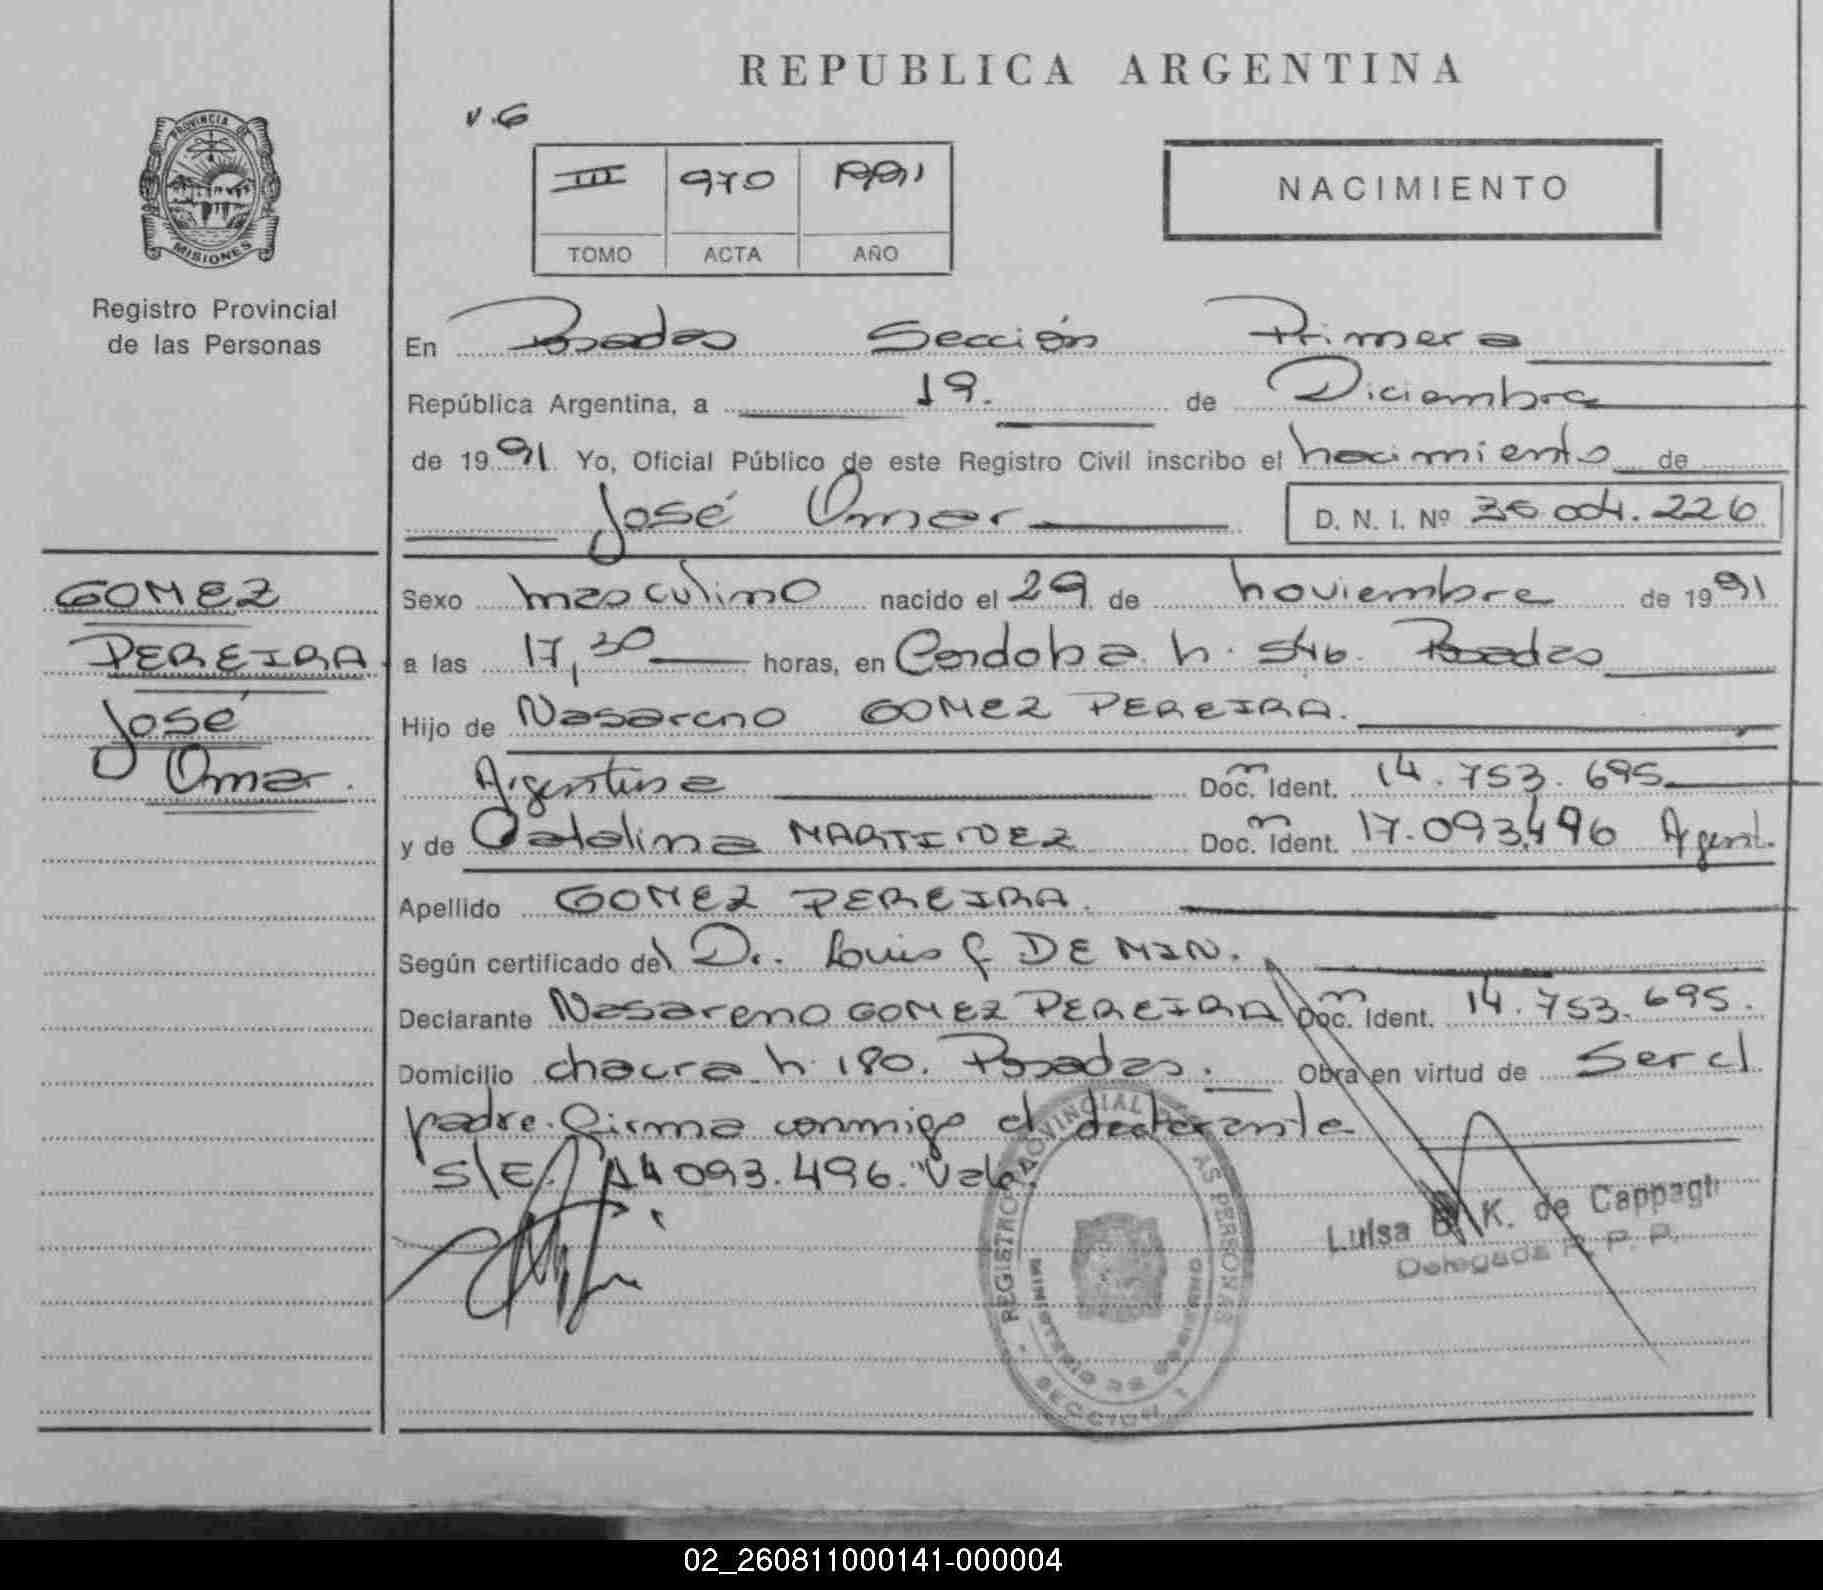 REPUBLICA ARGENTINA
v.6
III 970 1991
TOMO ACTA AÑO
NACIMIENTO
PROVINCIA DE
MISIONES
Registro Provincial
de las Personas
En Posadas Sección Primera
República Argentina, a 19. de Diciembre
de 1991 Yo, Oficial Público de este Registro Civil inscribo el nacimiento de
José Omar D. N. I. Nº 36.004.226
GOMEZ
PEREIRA
José
Omar.
Sexo masculino nacido el 29 de noviembre de 1991
a las 17,30 horas, en Cordoba n. 546. Posadas
Hijo de Nasareno GOMEZ PEREIRA.
Argentina Doc. Ident. 14.753.695
y de Catalina MARTINEZ Doc. Ident. 17.093.496 Argent.
Apellido GOMEZ PEREIRA.
Según certificado del Dr. Luis DE MIN.
Declarante Nasareno GOMEZ PEREIRA Doc. Ident. 14.753.695.
Domicilio chacra n. 180. Posadas. Obra en virtud de Ser el
padre. Firma conmigo el declarante
S/E. 093.496. Vale.
REGISTRO PROVINCIAL DE LAS PERSONAS
MINISTERIO DE GOBIERNO
SECCION 1
Luisa K. de Cappagli
Delegada R. P. P.
02_260811000141-000004